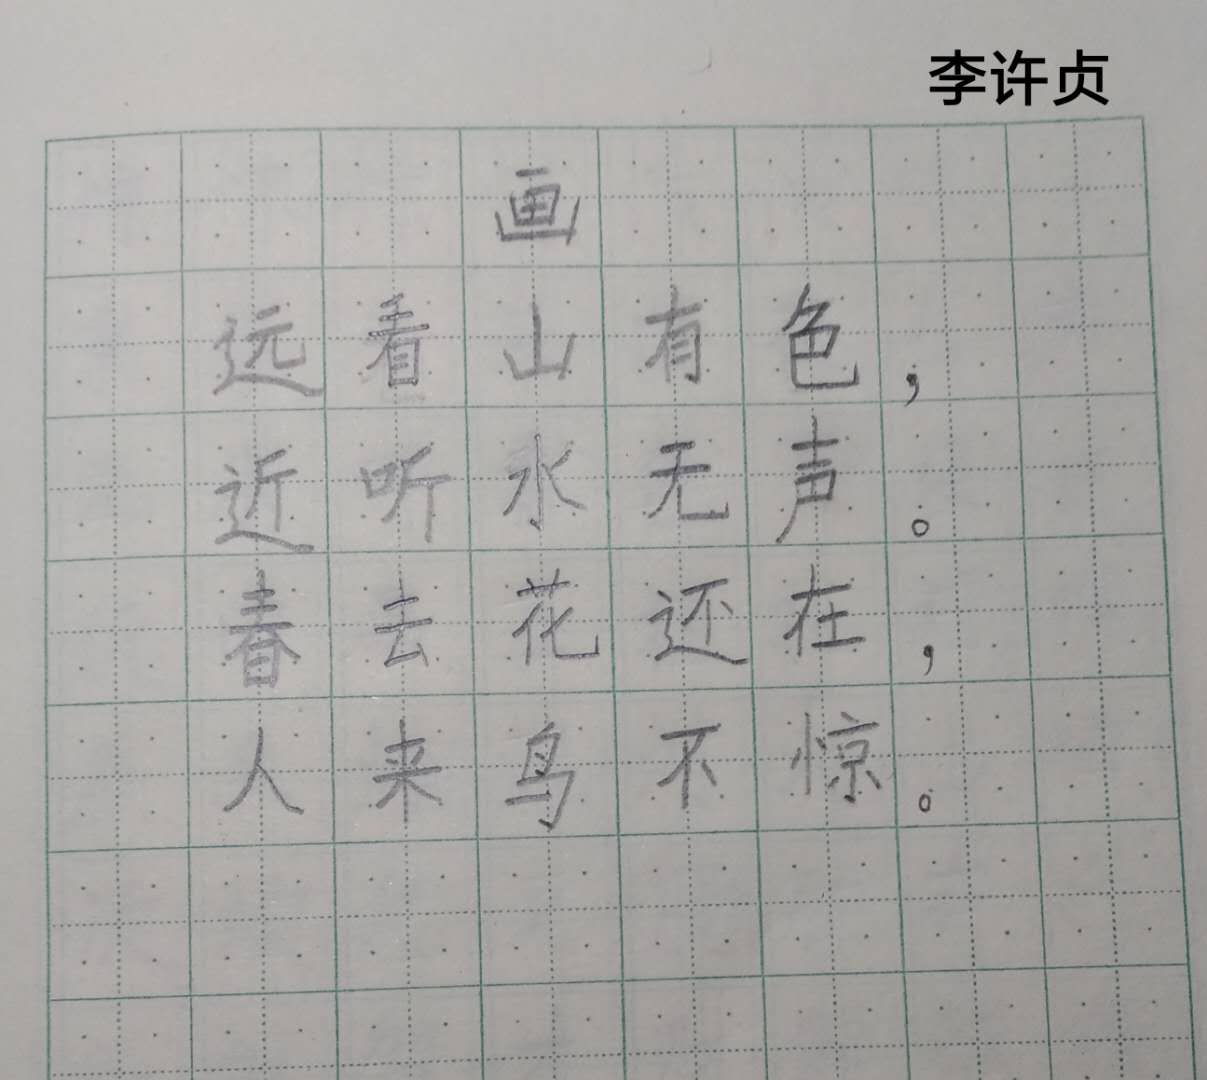 李许贞
画
远看山有色，
近听水无声。
春去花还在，
人来鸟不惊。